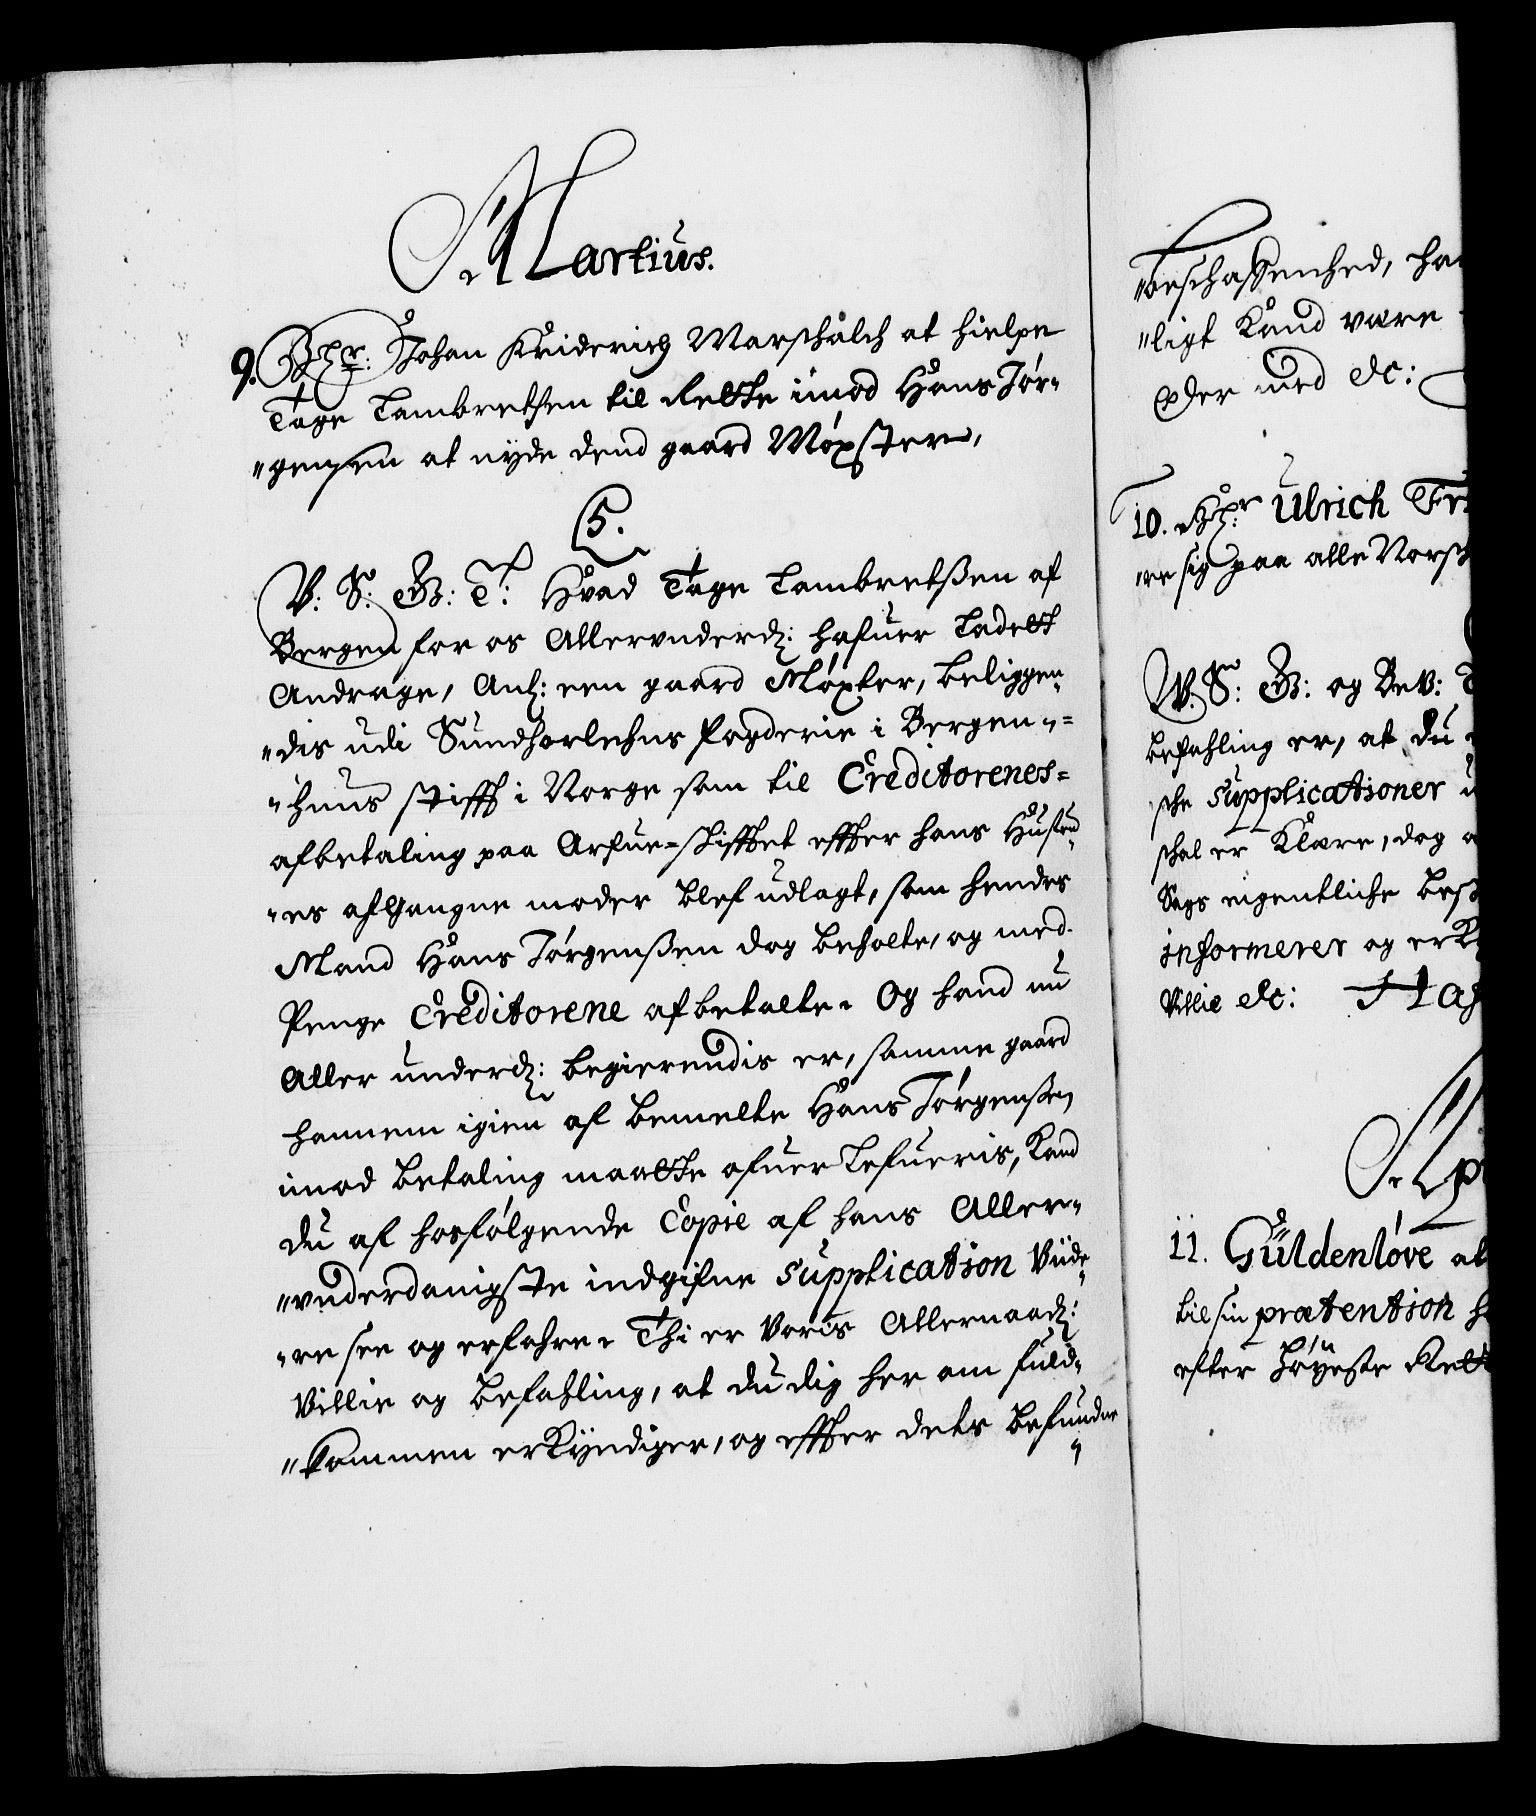 Martius.
9. Br: Johan Friderich Marschalch at hielpe
Tage Lambretsen til Rette imod Hans Jör-
"gensen at nyde dend gaard Möxster,
5.
V: S: G: T: Hvad Tage Lambretßen af
Bergen for os Allervnderd: hafuer ladett
Andrage, Anl: een gaard Möxter, beliggen-
"dis udi Sundhorlehns fogderie i Bergen-
"huus stifft i Norge som til Creditorenes
afbetaling paa Arfue-skifftet effter hans Hustru-
"es afgangne moder blef udlagt, som hendes
Mand Hans Jörgenßen dog beholte, og med
Penge Creditorene afbetalte. Og hand nu
Aller underd: begierendis er, samme gaard
hannem igien af bemelte Hans Jörgenßen
imod betaling maatte ofuer lefueris, Kand
du af hosfölgende Copie af hans Aller-
"vnderdanigste indgifne Supplication Viide-
"re see og erfahre. Thi er Voris Allernaad:
Villie og befahling, at du dig her om fuld-
"kommen erkyndiger, og effter dets befundne
"beschaffenhed,
"ligt Kand være
der med etc:
10. Ulrich
"re sig paa alle
V. S: G: og Bev:
befahling er, at du
sche Supplicationer
schal er Klære, dog
Sags eigentliche
informerer og
Villie etc:
11. Güldenlöve at
til sin prætention
efter Höyeste Rett